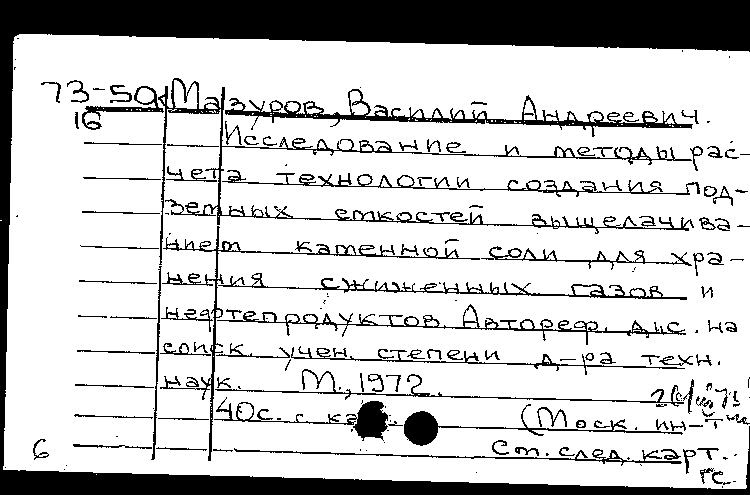 73-50 Мазуров, Василий Андреевич.
16
Исследование и методы рас-
чета технологии создания под-
земных емкостей выщелачива-
нием каменной соли для хра-
нения сжиженных газов и
нефтепродуктов. Автореф. дис. на
соиск. учен. степени д-ра техн.
наук. М., 1972.
40с. с (Моск. ин-т
6 См. след. карт.
ГС